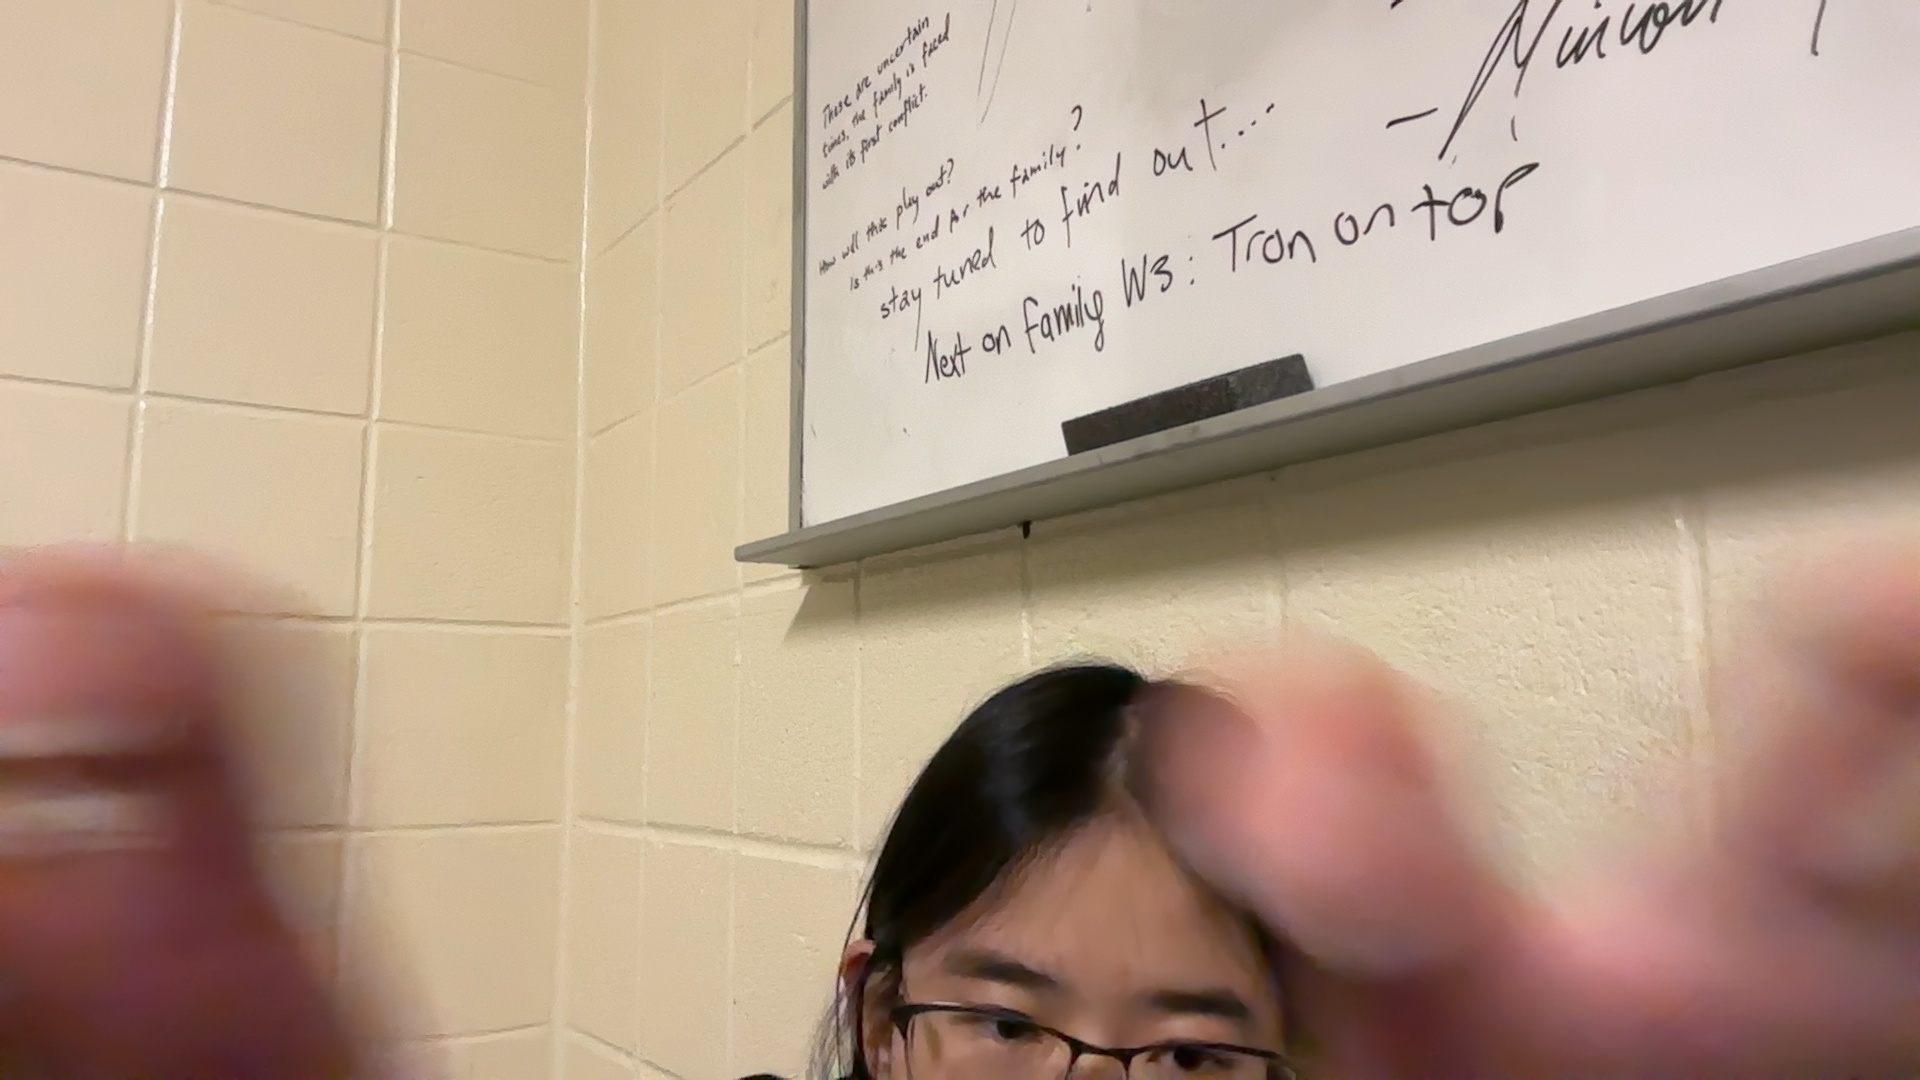 These are uncertain
times, the family is faced
with its first conflict.
How will this play out?
Is this the end for the family?
stay tuned to find out....
Next on family W3: Tron on top